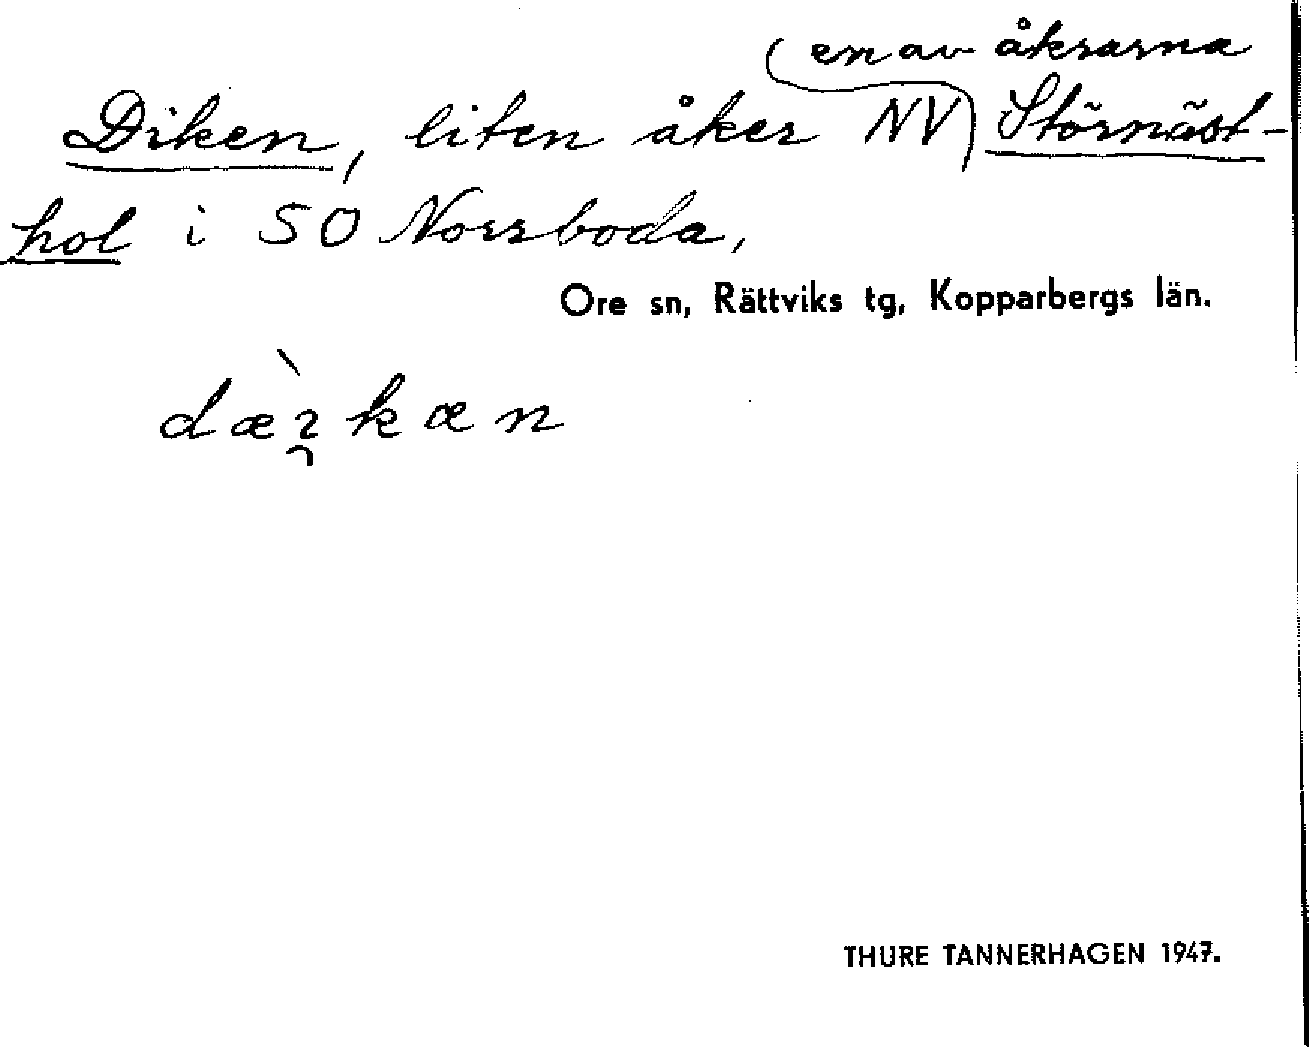 en av åkrarna
Diken, liten åker NV Störnäst-
hol i SO Norrboda,
Ore sn, Rättviks tg, Kopparbergs län.
THURE TANNERHAGEN 1947.